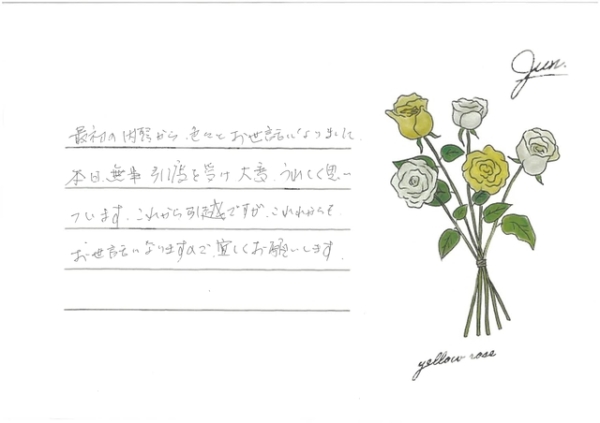 Jun.
最初の内覧から、色々とお世話になりました。
本日、無事引渡を受け大変うれしく思っ
ています。これから引越ですが、これからも
お世話になりますので、宜しくお願いします。
yellow rose